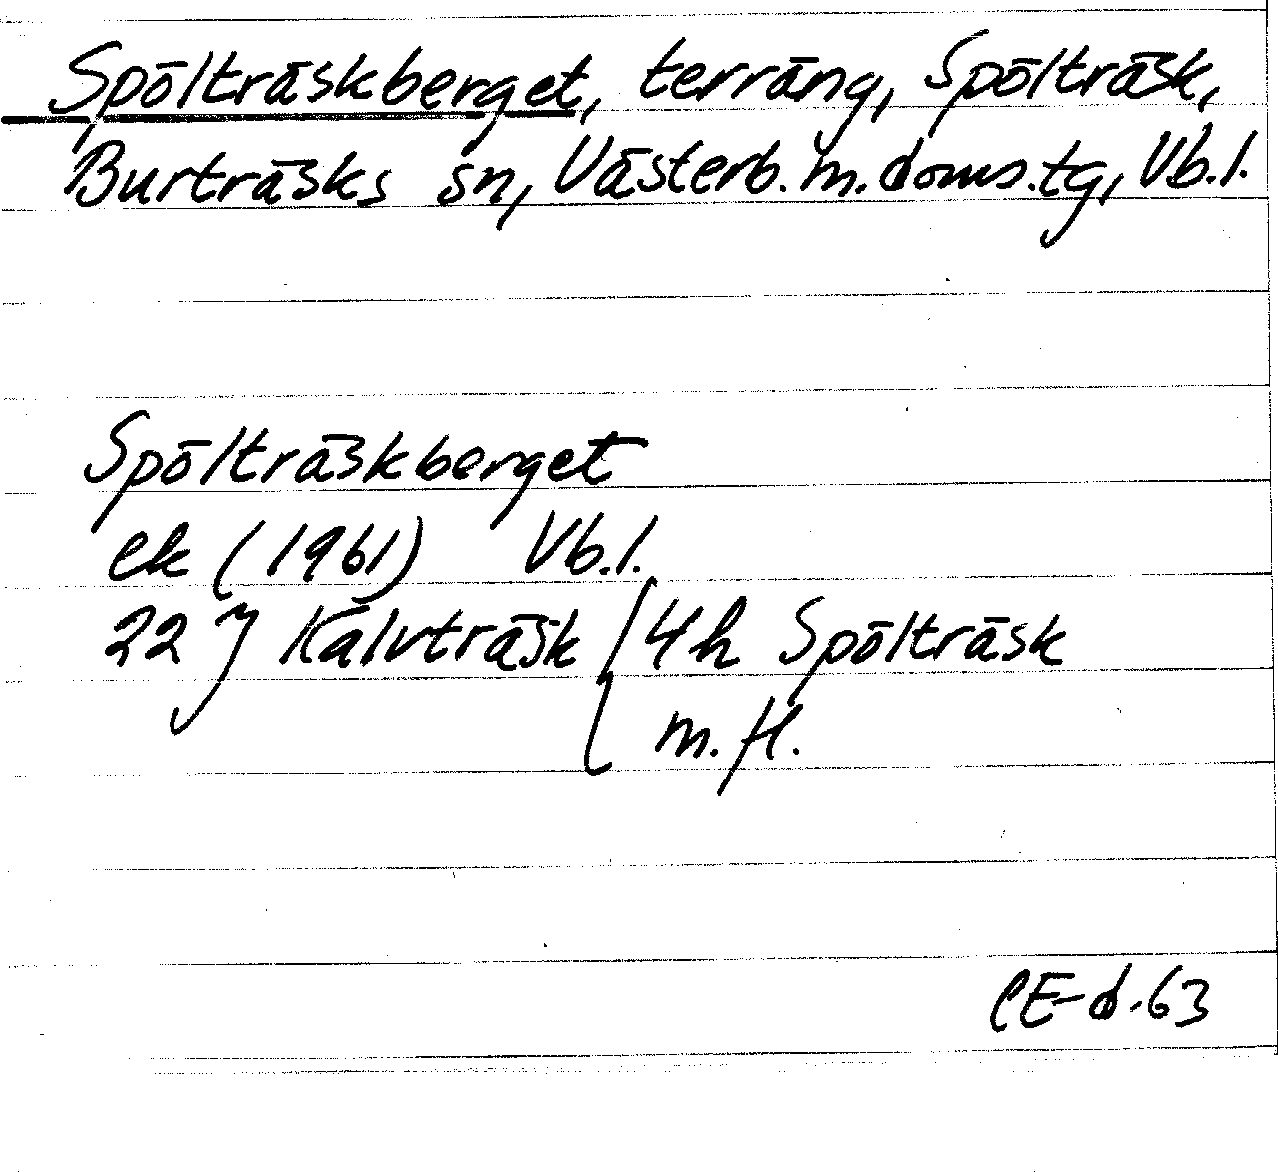 Spölträskberget, terräng, Spölträsk,
Burträsks sn, Västerb. m. doms.tg, Vb.l.
Spölträskberget
ek (1961) Vb.l.
22 J Kalvträsk / 4h Spölträsk
m. fl.
CE-d-63